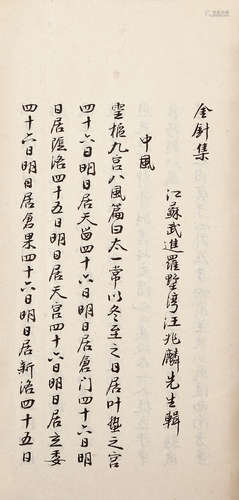 金針集
江蘇武進羅墅灣汪兆麟先生輯
中風
靈樞九宫八風篇曰太一常以冬至之日居叶蟄之宫
四十六日明日居天留四十六日明日居倉門四十六日明
日居陰洛四十五日明日居天宫四十六日明日居玄委
四十六日明日居倉果四十六日明日居新洛四十五日